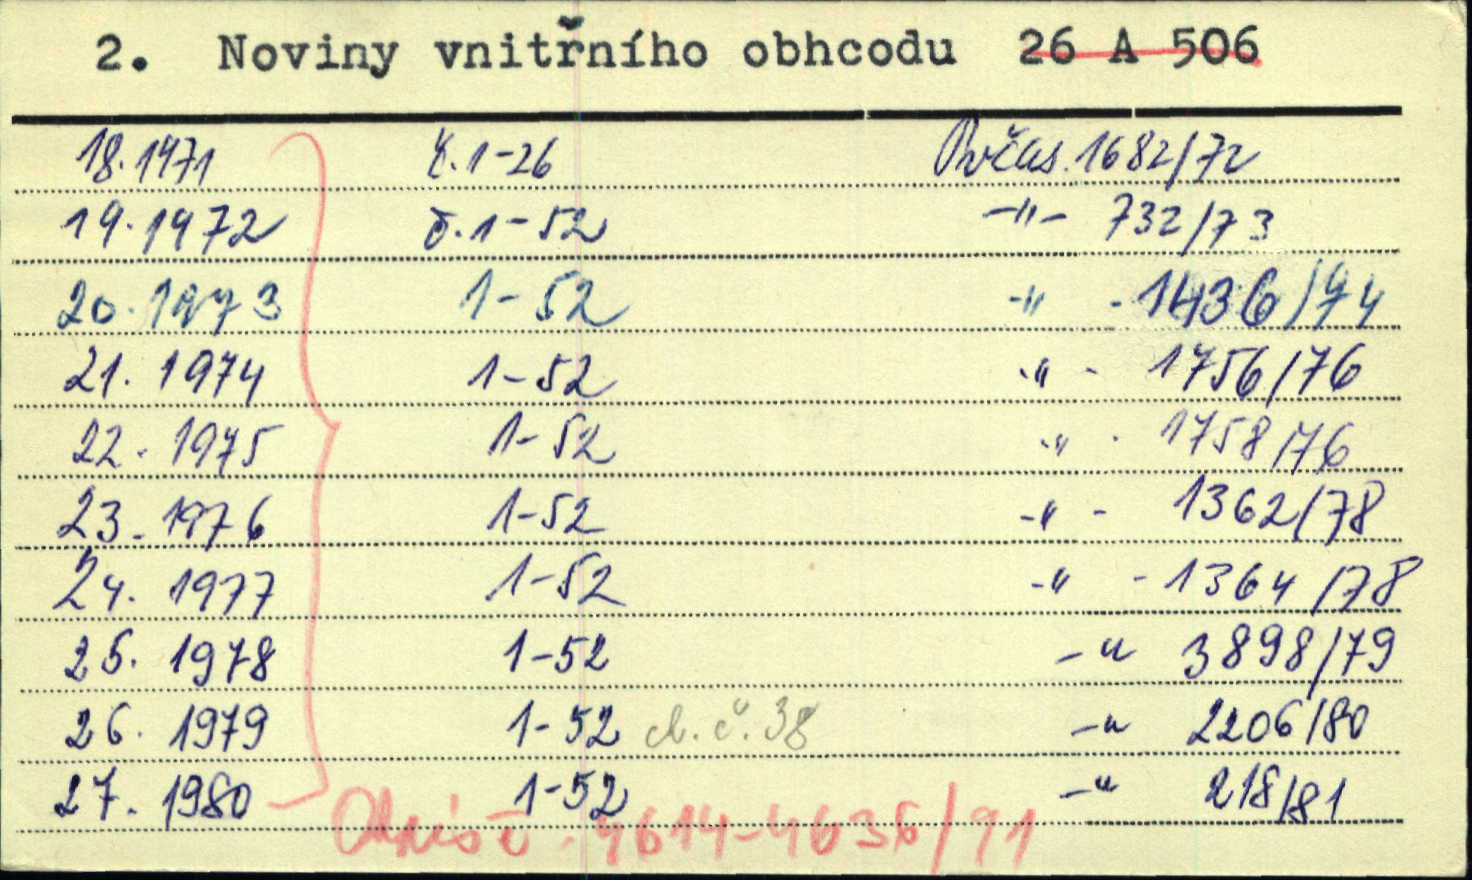 2. Noviny vnitřního obhcodu 26 A 506
18.1971 č.1-26 Počas.1682/72
19.1972 č.1-52 -"- 732/73
20.1973 1-52 -"- 1436/74
21.1974 1-52 -"- 1756/76
22.1975 1-52 -"- 1758/76
23.1976 1-52 -"- 1362/78
24.1977 1-52 -"- 1364/78
25.1978 1-52 -" 3898/79
26.1979 1-52 ch.č.38 -" 2206/80
27.1980 1-52 -" 218/81
4614-4636/91